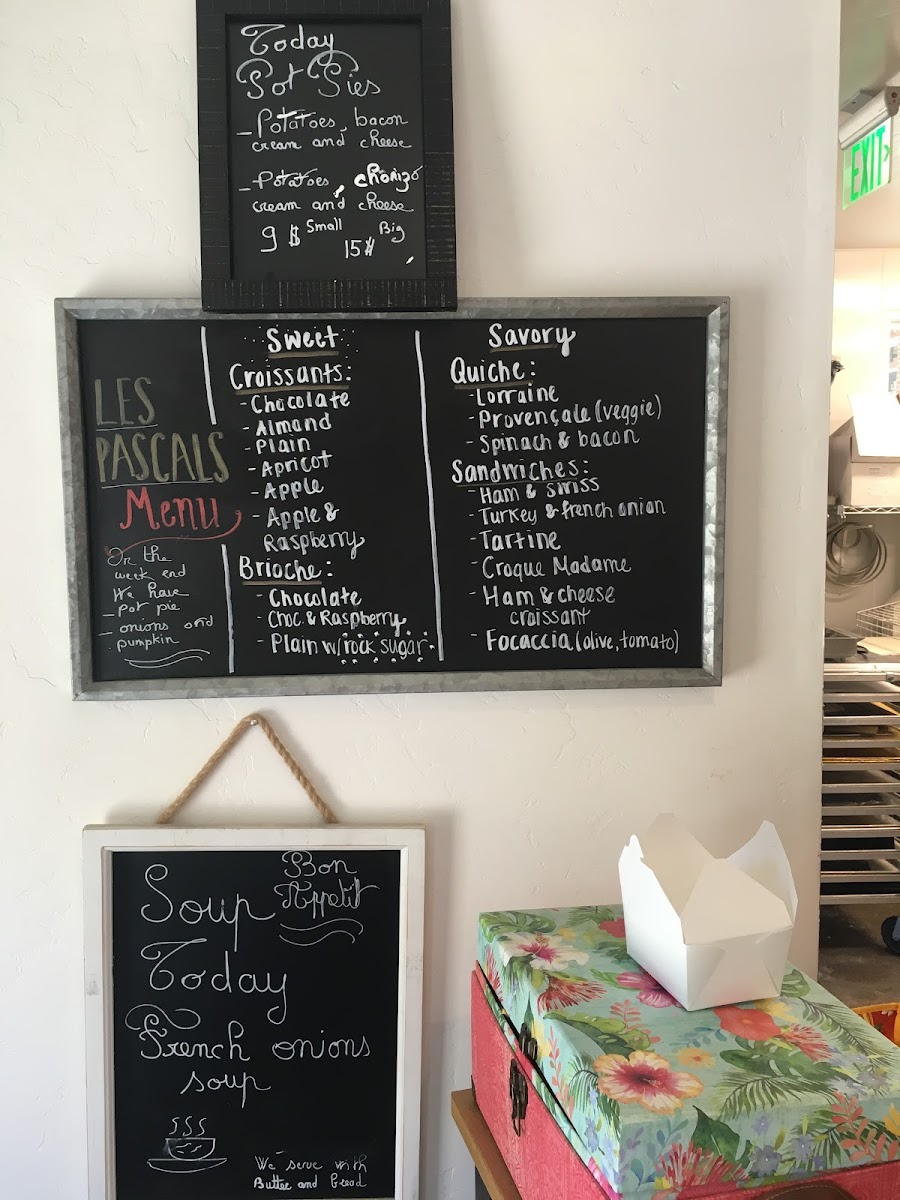 Today
Pot Pies
- Potatoes, bacon
cream and cheese
- Potatoes, chorizo
cream and cheese
9 $ Small 15$ Big
EXIT
LES
PASCALS
Menu
On the
week end
We have
- pot pie
- onions and
pumpkin
Sweet
Croissants:
- Chocolate
- Almond
- Plain
- Apricot
- Apple
- Apple &
Raspberry
Brioche:
- Chocolate
- Choc & Raspberry
- Plain w/rock sugar
Savory
Quiche:
- Lorraine
- Provençale (veggie)
- Spinach & bacon
Sandwiches:
- Ham & swiss
- Turkey & french onion
- Tartine
- Croque Madame
- Ham & cheese
croissant
- Focaccia (olive, tomato)
Bon
Appetit
Soup
Today
French onions
soup
We serve with
Butter and bread